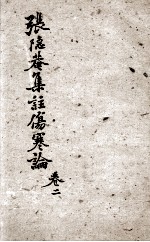 張隱菴集註傷寒論
卷二